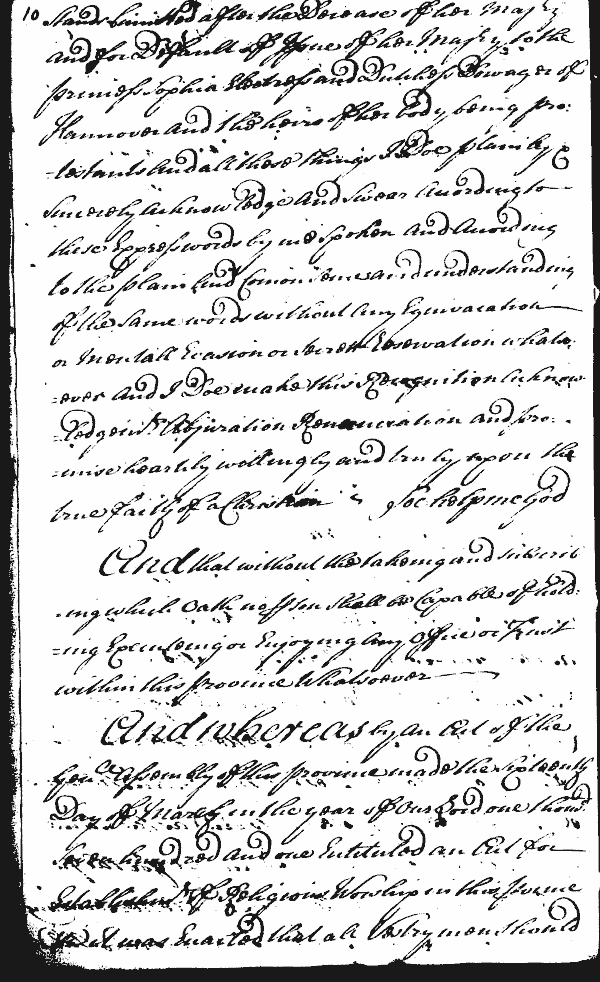 10 Stands Limitted after the Decease of her Majty
and for Default of Issue of her Majty to the
princess Sophia Electress and Dutchess Dowager of
Hannover And the heirs of her body being pro:
-testants And all these things I Doe plainly
sincerely acknowledge And Swear According to
these Express words by me spoken and According
to the plain and Comon Sence and understanding
of the same words without Any Equivocation
or Mentall Evasion or Secrett Reservation whats:
-ever And I Doe make this Recognition Acknow
-ledgemt Abjuration Renunciation and pro:
-mise heartily willingly and truly upon the
true faith of a Christian Soe help me God
And that without the takeing and subscrib
-ing which Oath no person shall be Capable of hold:
=ing Execuseing or Enjoying Any Office or Trust
within this province Whatsoever
And whereas by an Act of the
Genll Assembly of this province made the sixteenth
Day of March in the year of our Lord one thousd
Seven hundred and one Entituled an Act for
Establishmt of Religious Worship in this provine
it was Enacted that all Vestrymen should